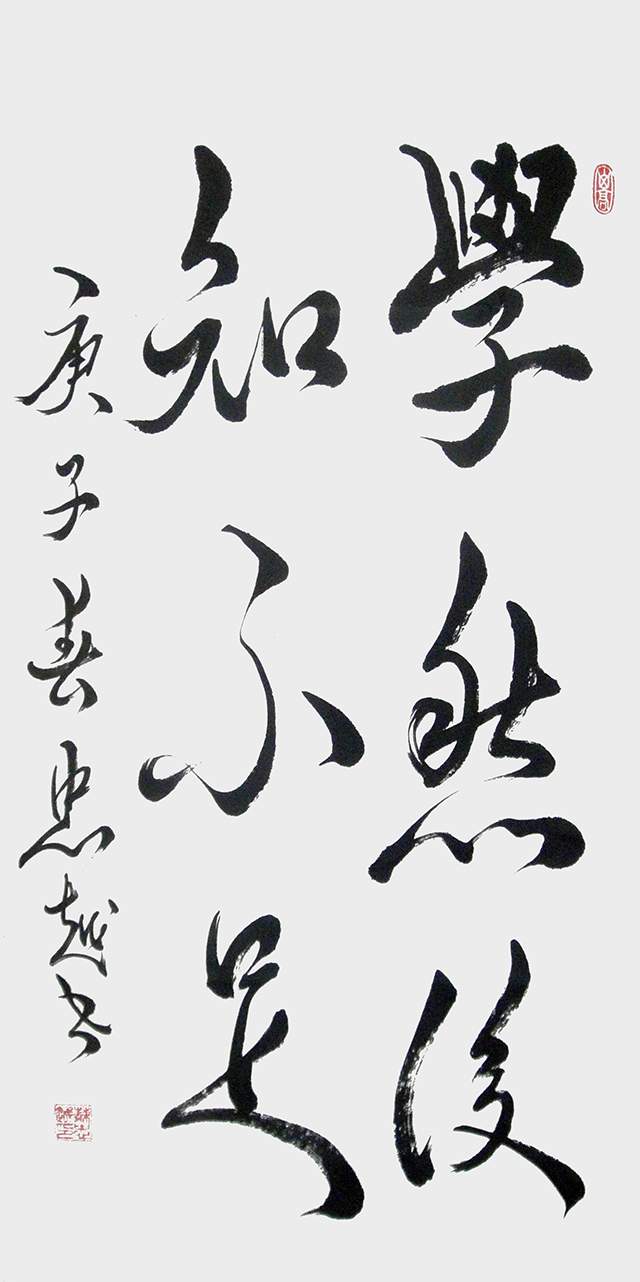 學然後
知不足
庚子春忠越書